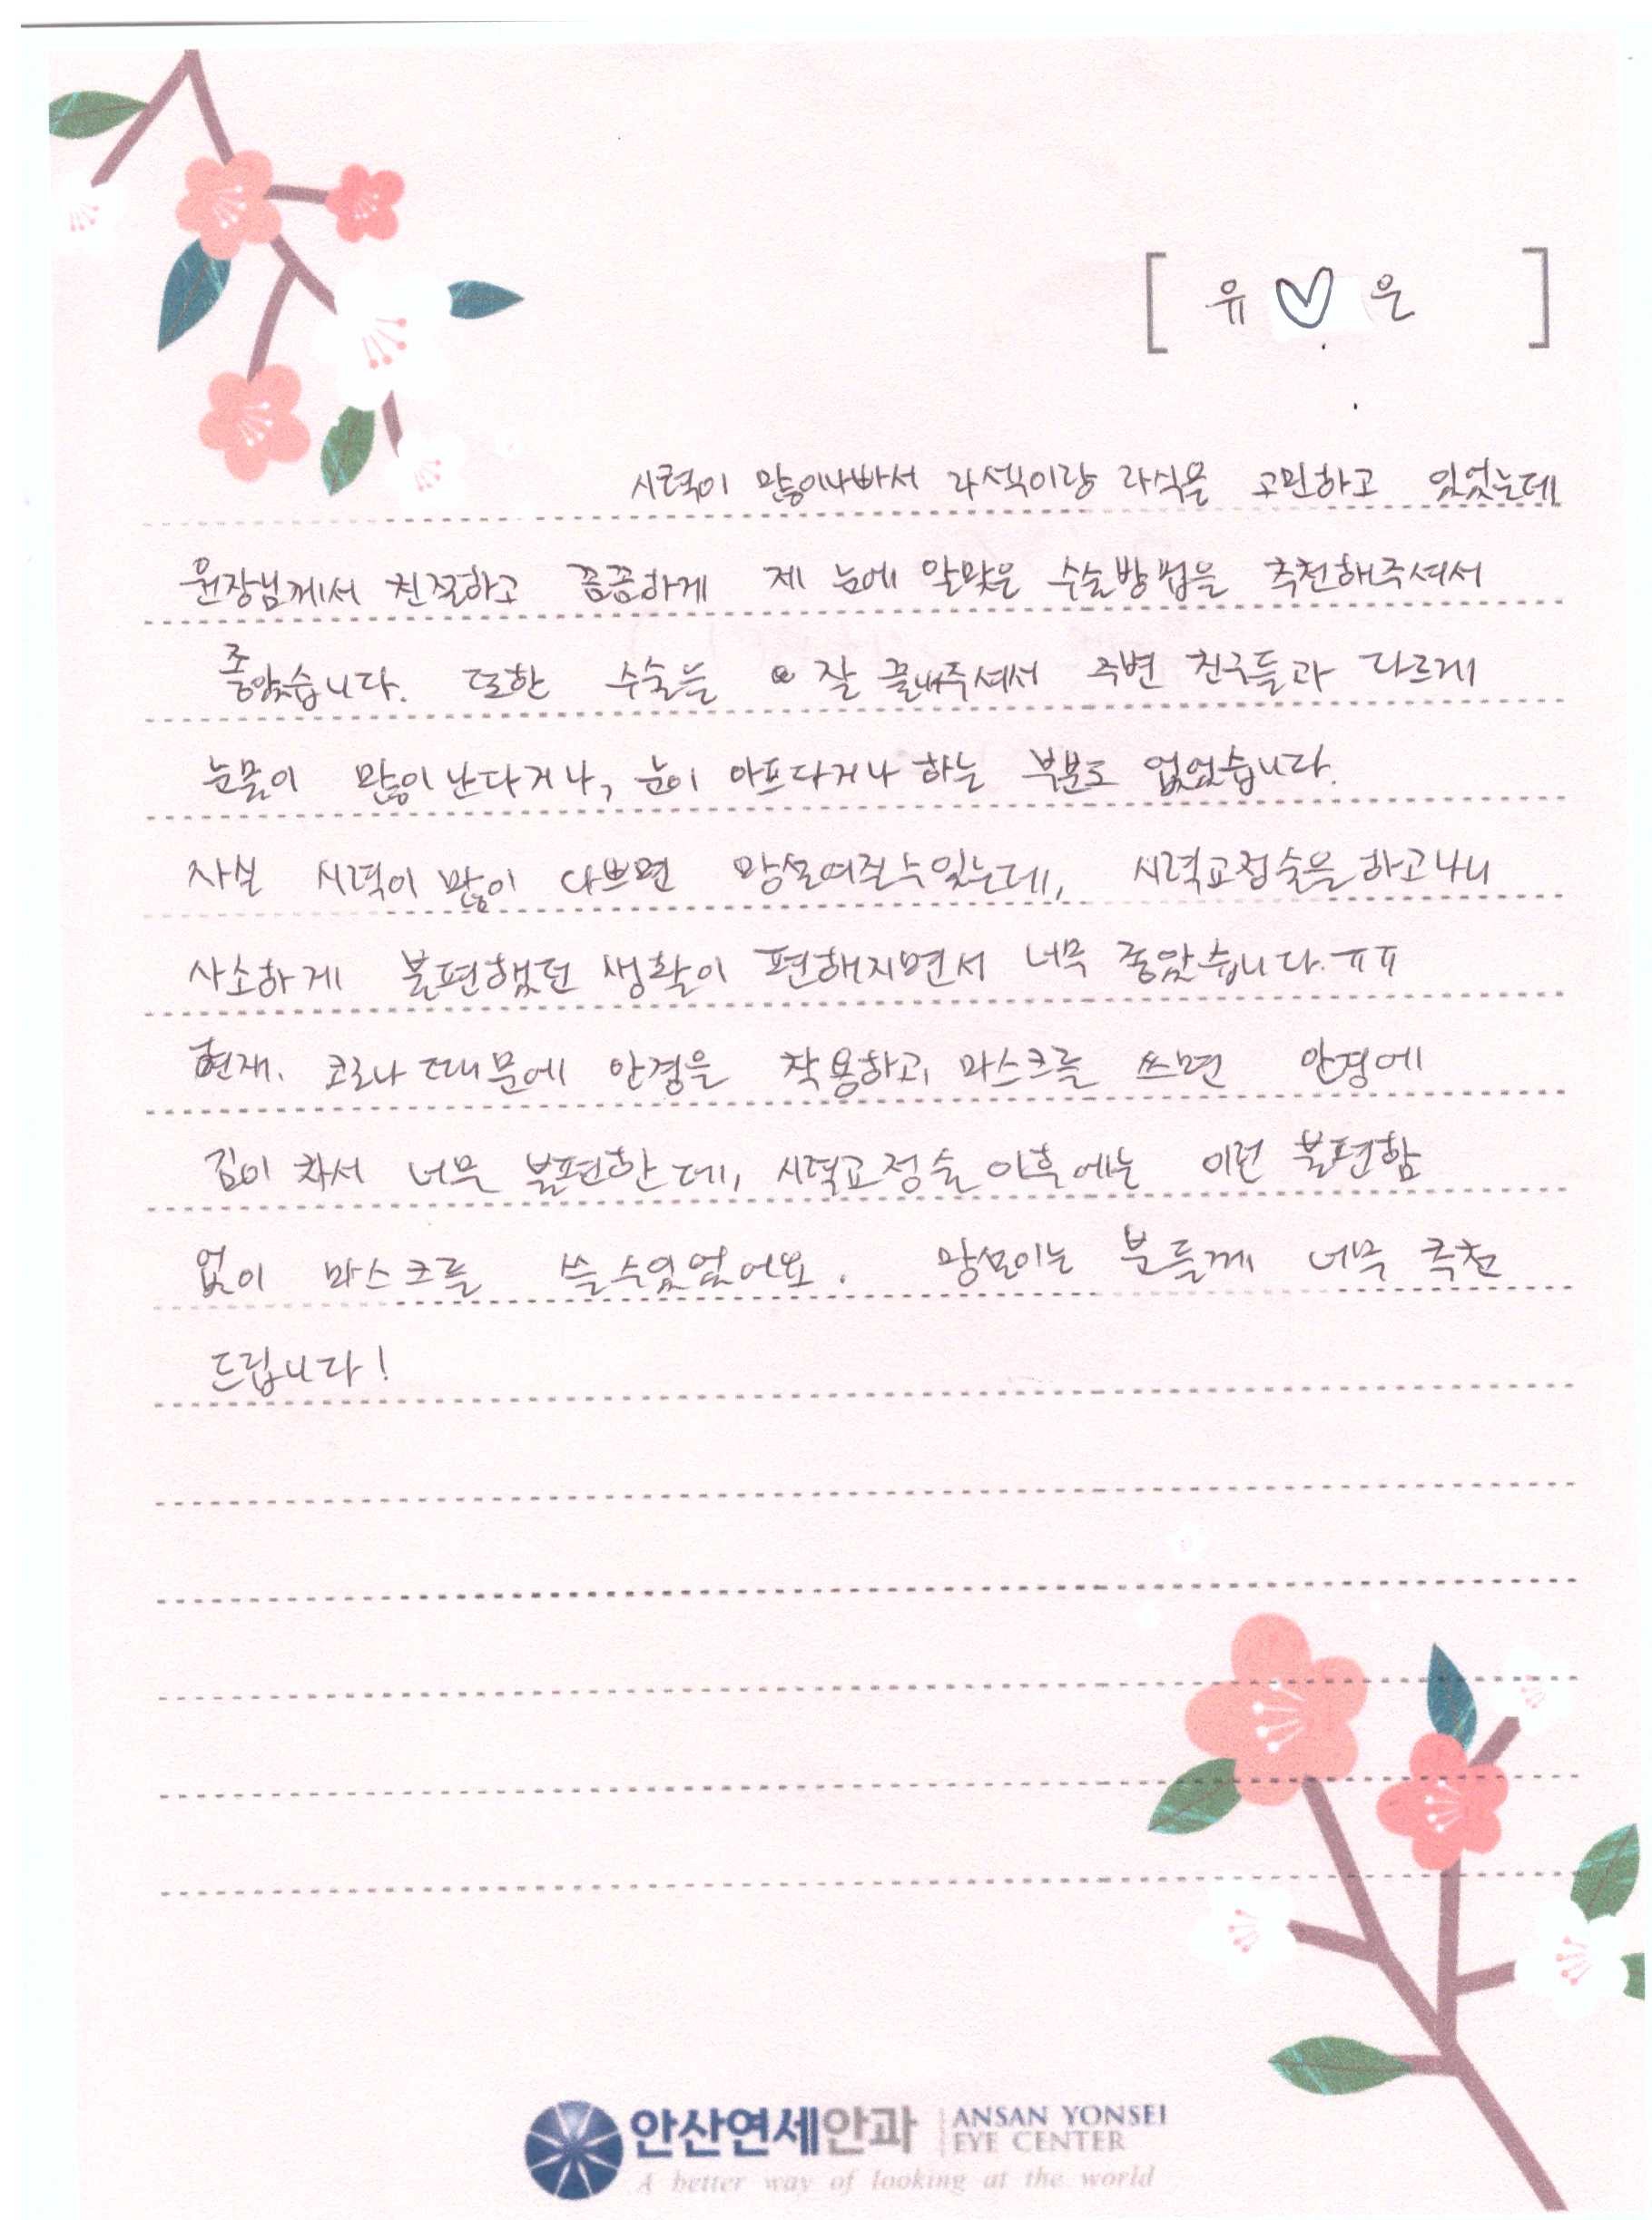 [ 유♡은 ]
시력이 많이나빠서 라섹이랑 라식을 고민하고 있었는데
원장님께서 친절하고 꼼꼼하게 제 눈에 알맞은 수술방법을 추천해주셔서
좋았습니다. 또한 수술을 잘 끝내주셔서 주변 친구들과 다르게
눈물이 많이난다거나, 눈이 아프다거나 하는 부분도 없었습니다.
사실 시력이 많이 나쁘면 망설여질수있는데, 시력교정술을하고나니
사소하게 불편했던 생활이 편해지면서 너무 좋았습니다.ㅠㅠ
현재. 코로나 때문에 안경을 착용하고, 마스크를 쓰면 안경에
김이 차서 너무 불편한데, 시력교정술이후에는 이런 불편함
없이 마스크를 쓸수있었어요. 망설이는 분들께 너무 추천
드립니다!
안산연세안과 ANSAN YONSEI
EYE CENTER
A better way of looking at the world